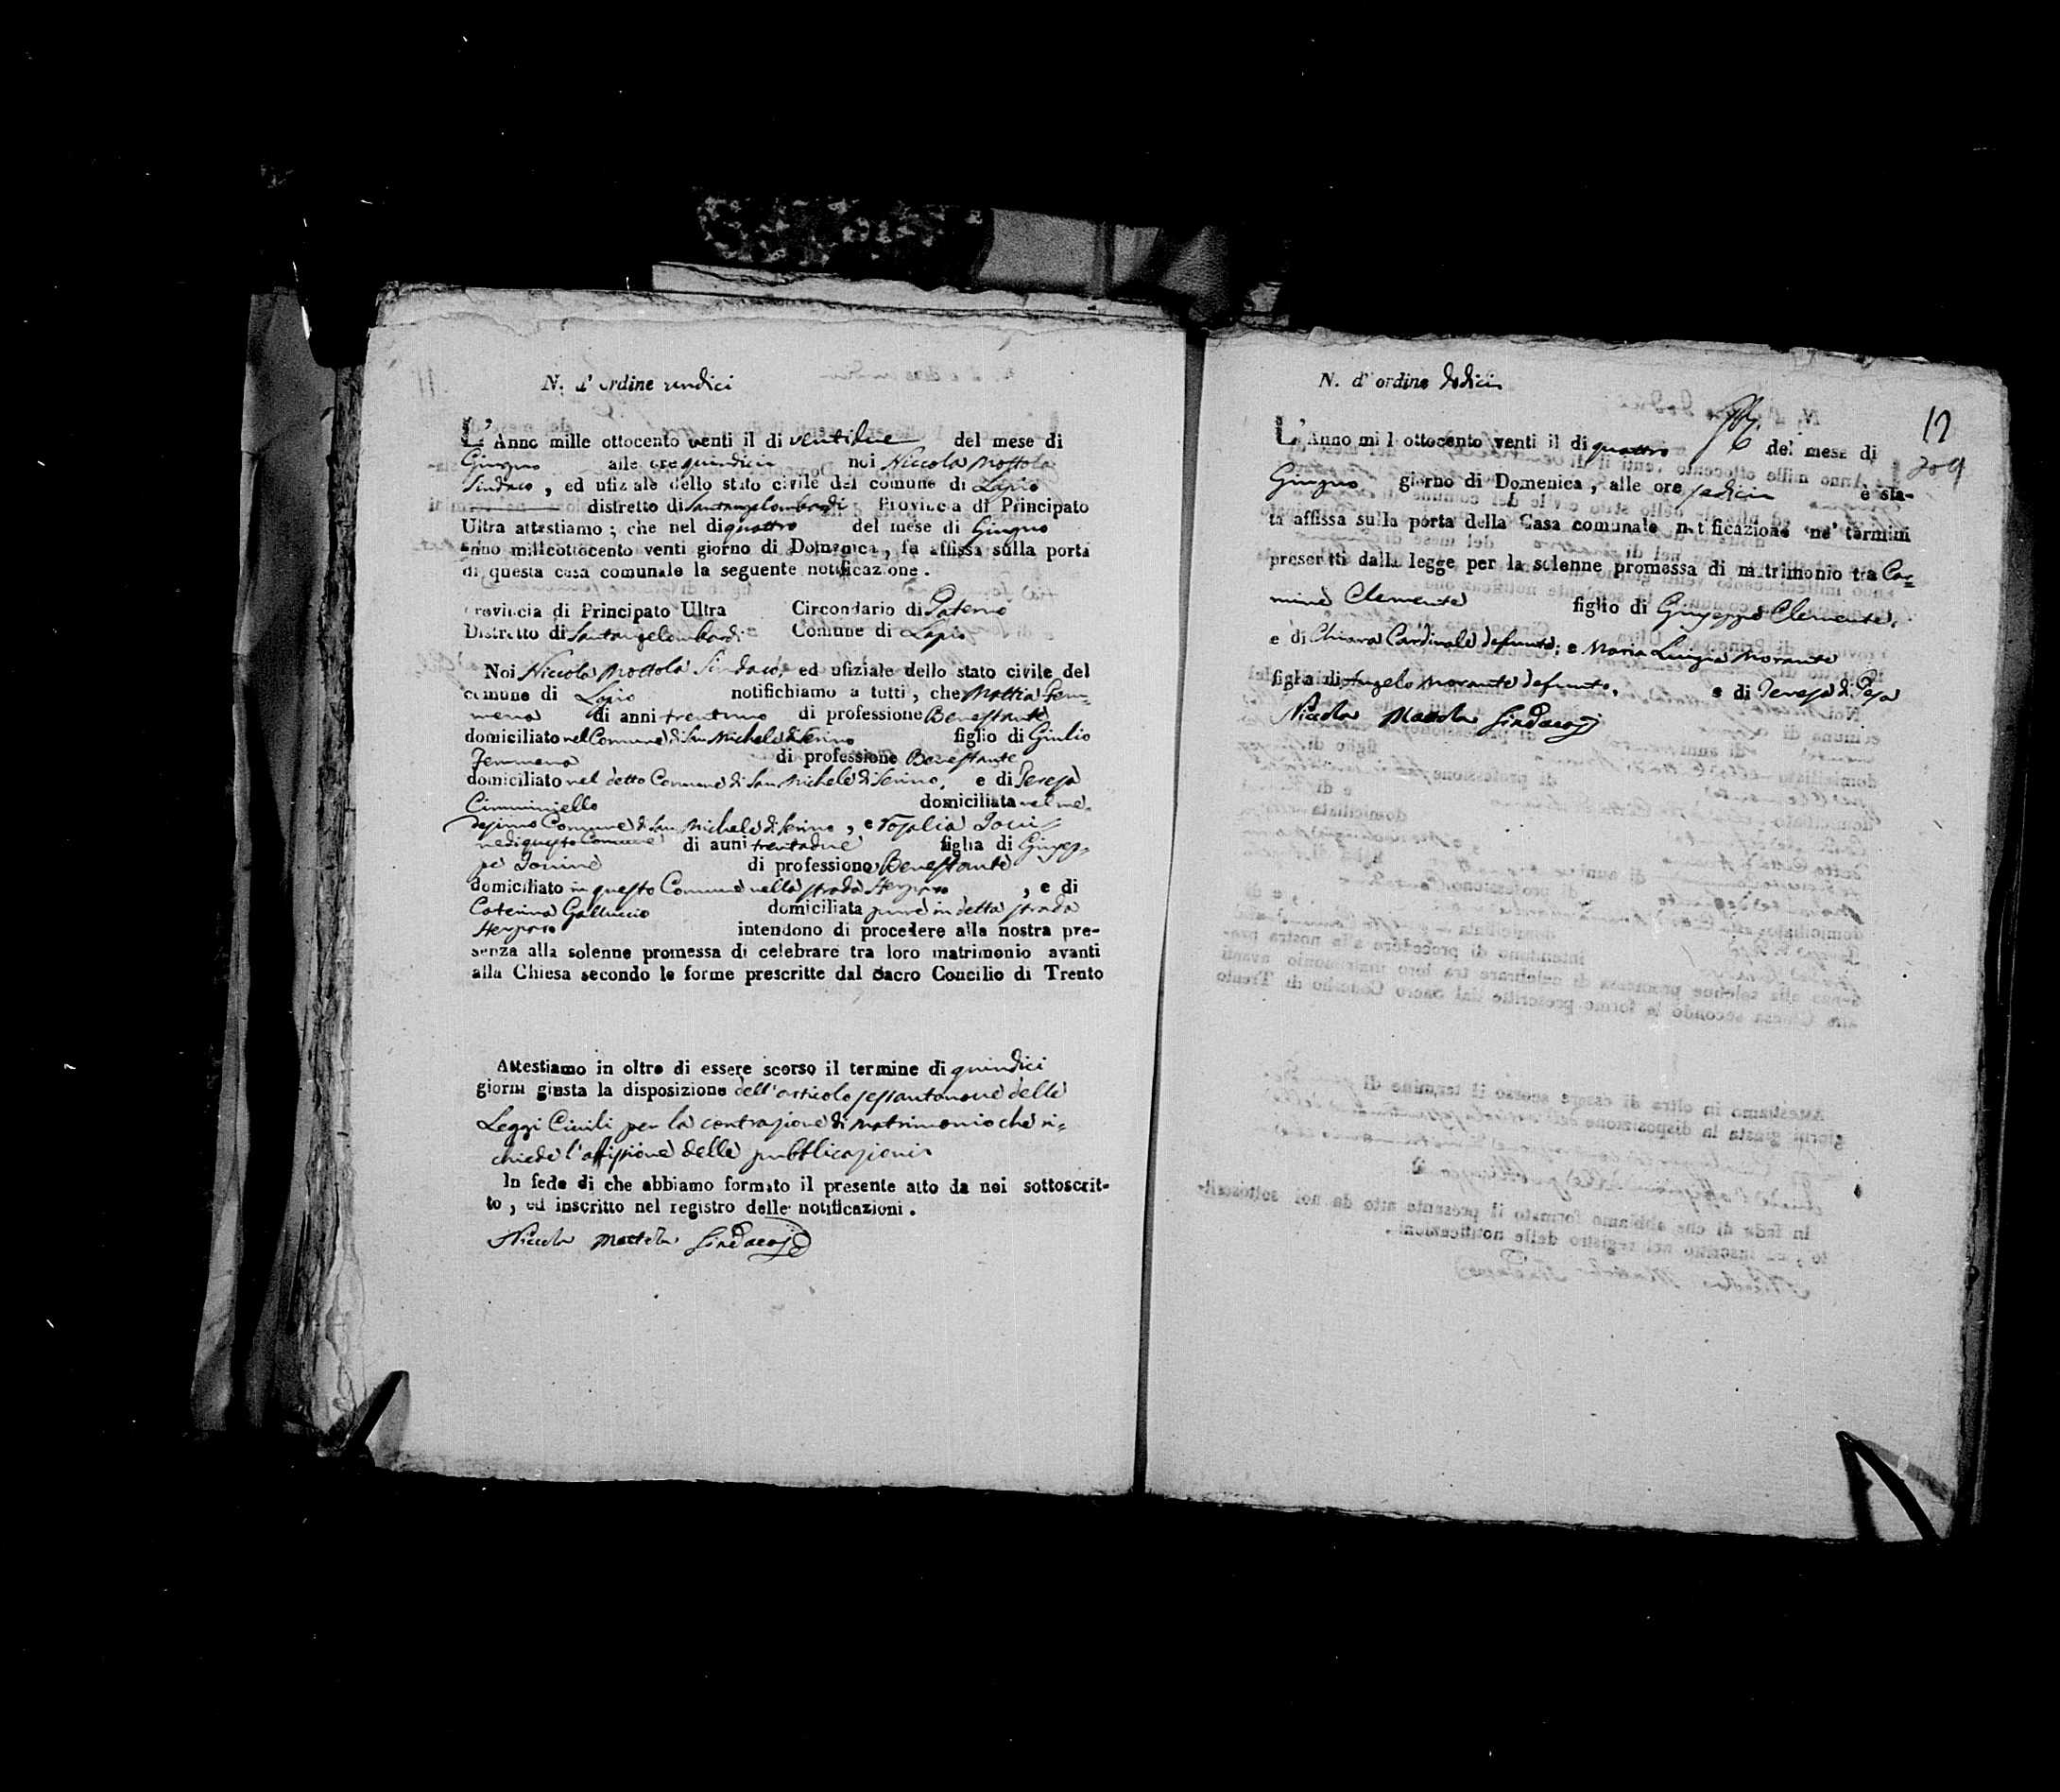 N. d' ordine undici
L' Anno mille ottocento venti il dì ventidue del mese di
Giugno alle ore quindici noi Niccola Mottola
Sindaco, ed ufiziale dello stato civile del comune di Lapio
distretto di Santangelombardi Provincia di Principato
Ultra attestiamo; che nel dì quattro del mese di Giugno
anno milleottocento venti giorno di Domenica, fu affissa sulla porta
di questa casa comunale la seguente notificazione.
Provincia di Principato Ultra Circondario di Paterno
Distretto di Santangelombardi Comune di Lapio
Noi Niccola Mottola Sindaco, ed ufiziale dello stato civile del
comune di Lapio notifichiamo a tutti, che Mattia Fem=
mena di anni trentuno di professione Benestante
domiciliato nel Comune di San Michele di Serino figlio di Giulio
Femmena di professione Benestante
domiciliato nel detto Comune di San Michele di Serino, e di Teresa
Cimminiello domiciliata nel me=
desimo Comune di San Michele di Serino, e Rosalia Ioni=
ne di questo Comune di anni trentadue figlia di Giusep=
pe Ionine di professione Benestante
domiciliato in questo Comune nella strada , e di
Caterina Galluccio domiciliata pure in detta strada
intendono di procedere alla nostra pre-
senza alla solenne promessa di celebrare tra loro matrimonio avanti
alla Chiesa secondo le forme prescritte dal Sacro Concilio di Trento
Attestiamo in oltre di essere scorso il termine di quindici
giorni giusta la disposizione dell'articolo sessantanove delle
Leggi Civili per la contrazione di matrimonio che ri=
chiede l'affissione delle pubblicazioni
In fede di che abbiamo formato il presente atto da noi sottoscrit-
to, ed inscritto nel registro delle notificazioni.
Niccola Mottola Sindaco
N. d' ordine dodici
12
209
L' Anno mille ottocento venti il dì quattro del mese di
Giugno giorno di Domenica, alle ore sedici è sta-
ta affissa sulla porta della Casa comunale notificazione ne' termini
prescritti dalla legge per la solenne promessa di matrimonio tra Car=
mine Clemente figlio di Giuseppe Clemente,
e di Chiara Cardinale defunta; e Maria Luigia Morante
figlia di Angelo Morante defunto, e di Teresa di Pesa
Niccola Mottola Sindaco